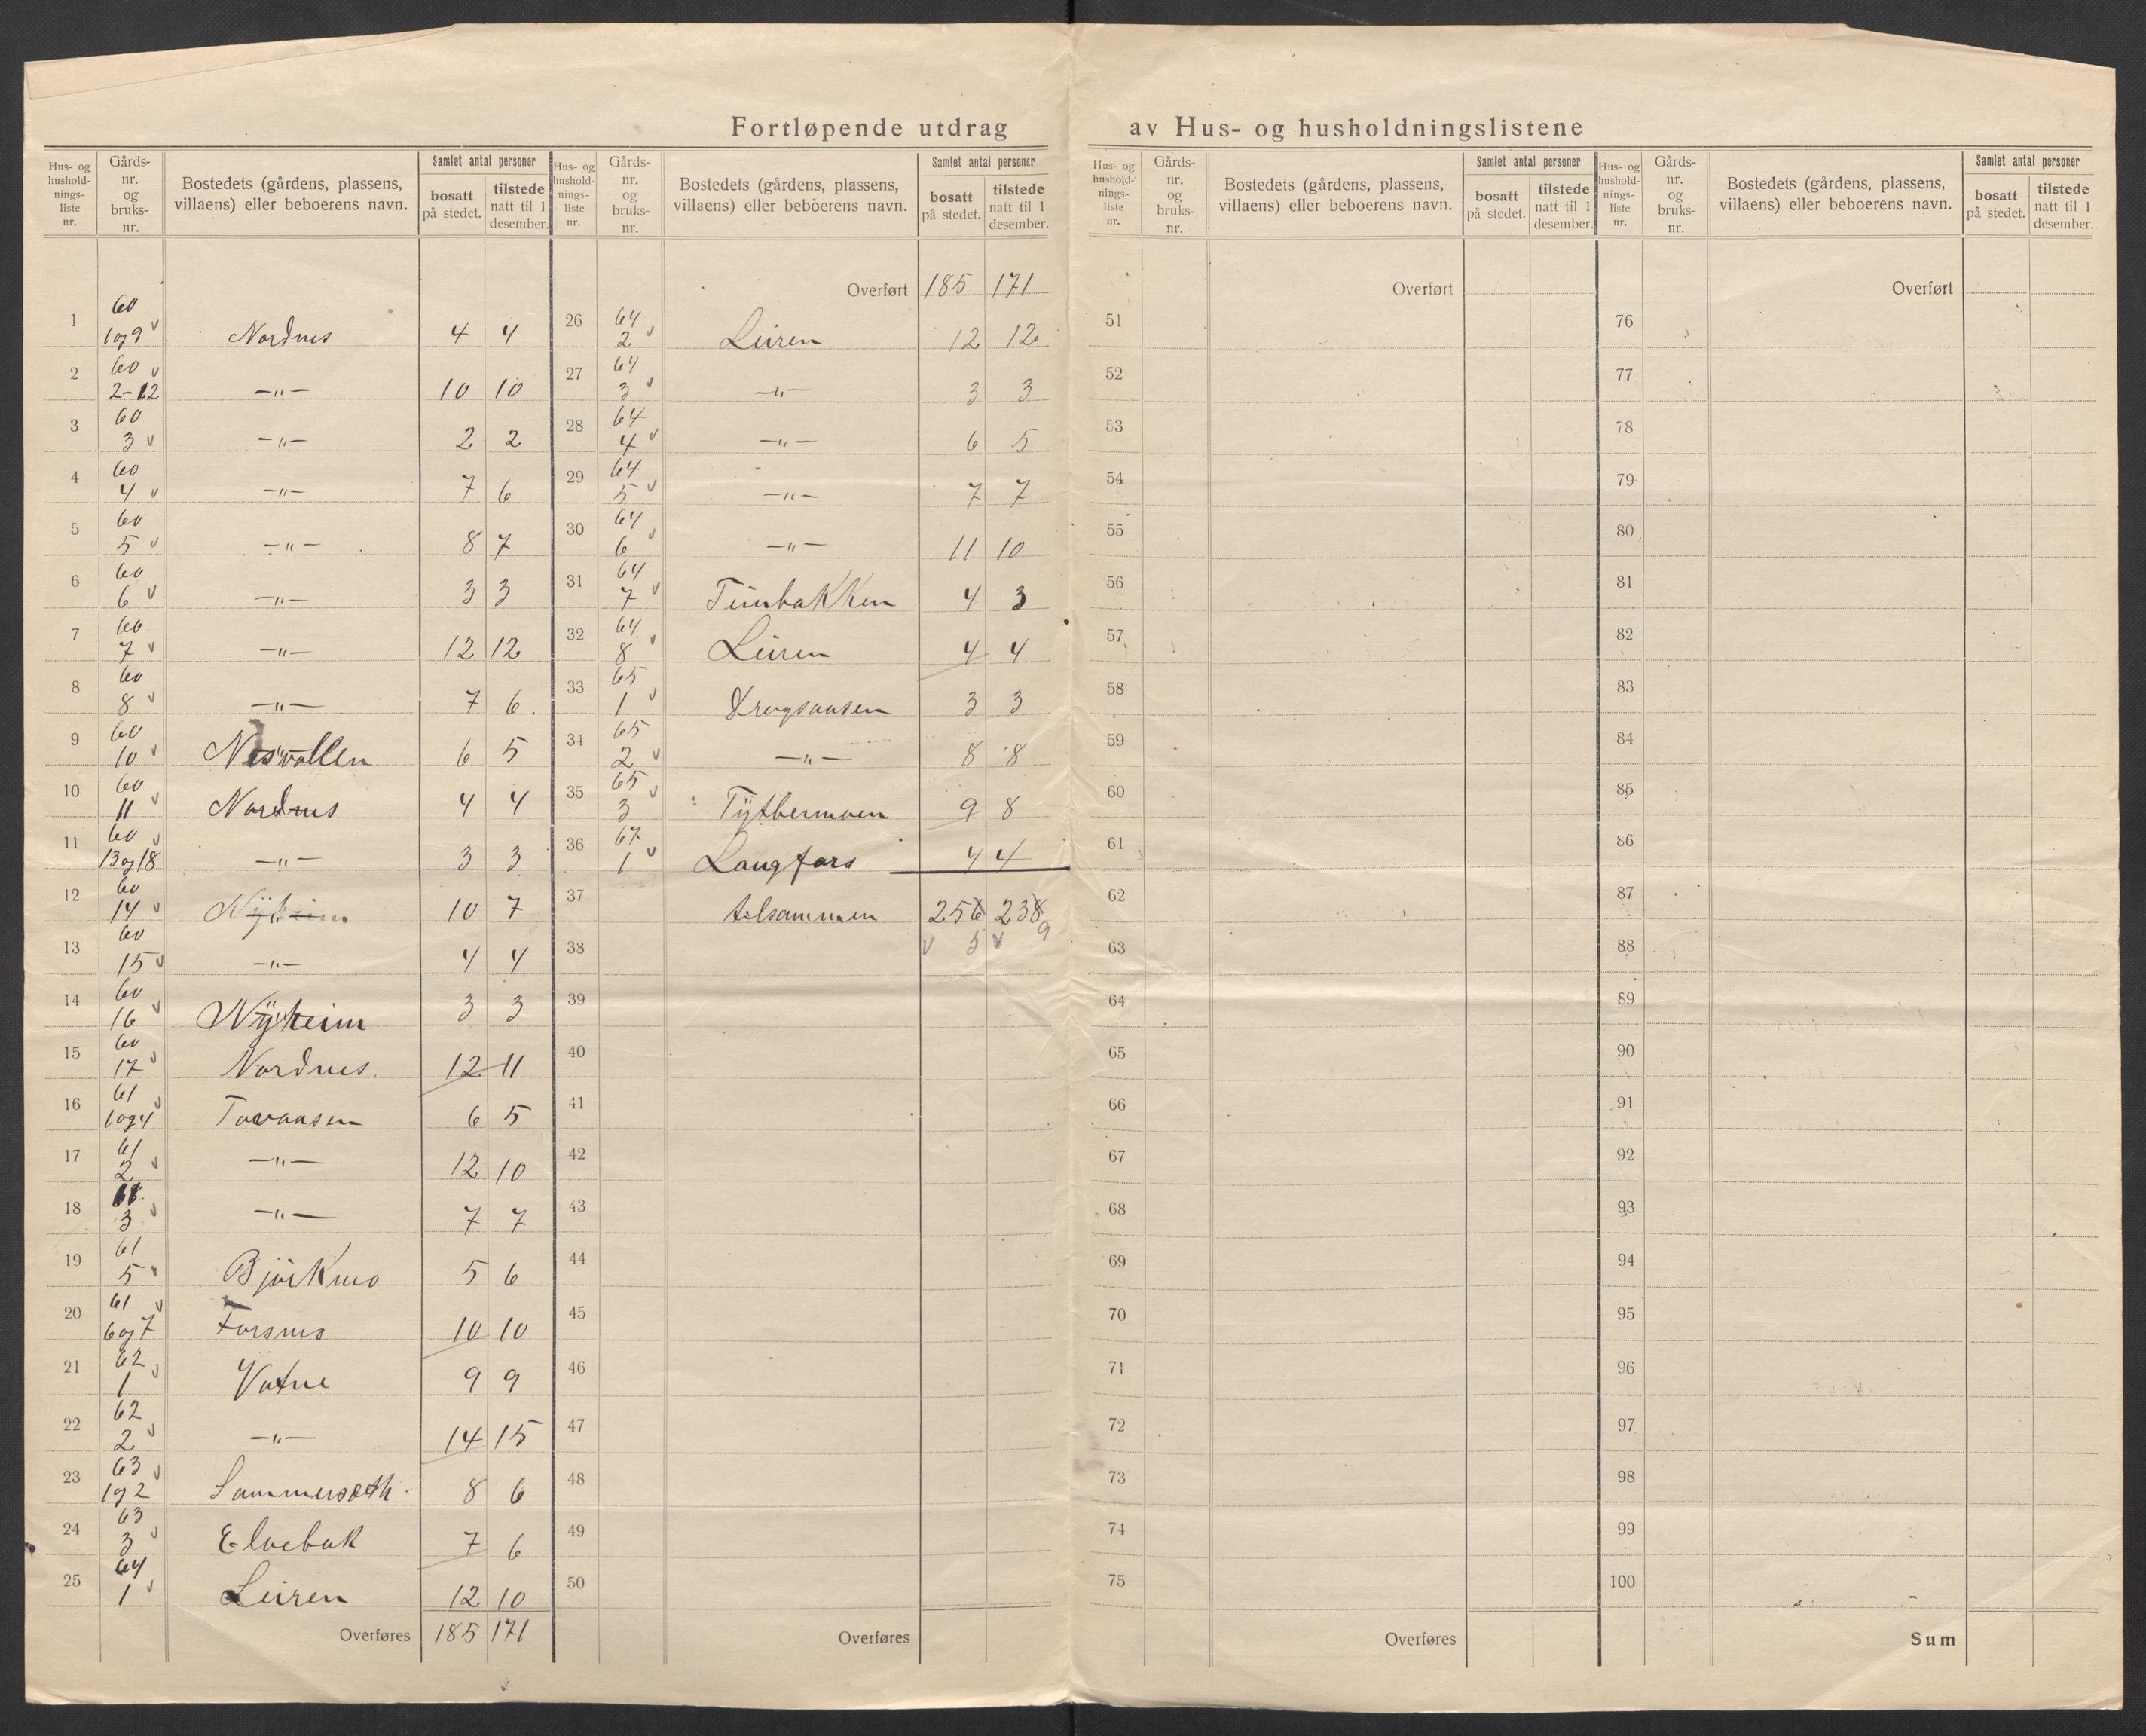 Fortløpende utdrag av Hus- og husholdningslistene
Hus- og hushold-nings-liste nr. | Gårds-nr. og bruks-nr. | Bostedets (gårdens, plassens, villaens) eller beboerens navn. | Samlet antal personer | bosatt på stedet. | tilstede natt til 1 desember.
1 | 60 1og9 v | Nordnes | 4 | 4
2 | 60 v 2-12 | -"- | 10 | 10
3 | 60 3 v | -"- | 2 | 2
4 | 60 4 v | -"- | 7 | 6
5 | 60 5 v | -"- | 8 | 7
6 | 60 6 v | -"- | 3 | 3
7 | 60 7 v | -"- | 12 | 12
8 | 60 8 v | -"- | 7 | 6
9 | 60 10 v | Nesvollen | 6 | 5
10 | 60 11 v | Nordnes | 4 | 4
11 | 60 v 13og18 | -"- | 3 | 3
12 | 60 14 v | Nÿheim | 10 | 7
13 | 60 15 v | -"- | 4 | 4
14 | 60 16 v | Nÿheim | 3 | 3
15 | 60 17 v | Nordnes. | 12 | 11
16 | 61 v 1og4 | Tovaasen | 6 | 5
17 | 61 2 v | -"- | 12 | 10
18 | 61 3 v | -"- | 7 | 7
19 | 61 5 v | Bjørkmo | 5 | 6
20 | 61 v 6og7 | Forsnes | 10 | 10
21 | 62 1 v | Vatne | 9 | 9
22 | 62 2 v | -"- | 14 | 15
23 | 63 v 1og2 | Sommerseth | 8 | 6
24 | 63 3 v | Elvebak | 7 | 6
25 | 64 1 v | Leiren | 12 | 10
Overføres | 185 | 171
Hus- og hushold-nings-liste nr. | Gårds-nr. og bruks-nr. | Bostedets (gårdens, plassens, villaens) eller beboerens navn. | Samlet antal personer | bosatt på stedet. | tilstede natt til 1 desember.
Overført | 185 | 171
26 | 64 2 v | Leiren | 12 | 12
27 | 64 3 v | -"- | 3 | 3
28 | 64 4 v | -"- | 6 | 5
29 | 64 5 v | -"- | 7 | 7
30 | 64 6 v | -"- | 11 | 10
31 | 64 7 v | 4 | 3
32 | 64 8 v | Leiren | 4 | 4
33 | 65 1 v | 3 | 3
34 | 65 2 v | -"- | 8 | 8
35 | 65 v 3 | Tÿtbermoen | 9 | 8
36 | 67 1 v | Langfors | 4 | 4
37 | tilsammen | 256 | 238
v 5 v 9
38
39
40
41
42
43
44
45
46
47
48
49
50
Overføres
Hus- og hushold-nings-liste nr. | Gårds-nr. og bruks-nr. | Bostedets (gårdens, plassens, villaens) eller beboerens navn. | Samlet antal personer | bosatt på stedet. | tilstede natt til 1 desember.
Overført
51
52
53
54
55
56
57
58
59
60
61
62
63
64
65
66
67
68
69
70
71
72
73
74
75
Overføres
Hus- og hushold-nings-liste nr. | Gårds-nr. og bruks-nr. | Bostedets (gårdens, plassens, villaens) eller beboerens navn. | Samlet antal personer | bosatt på stedet. | tilstede natt til 1 desember.
Overført
76
77
78
79
80
81
82
83
84
85
86
87
88
89
90
91
92
93
94
95
96
97
98
99
100
Sum